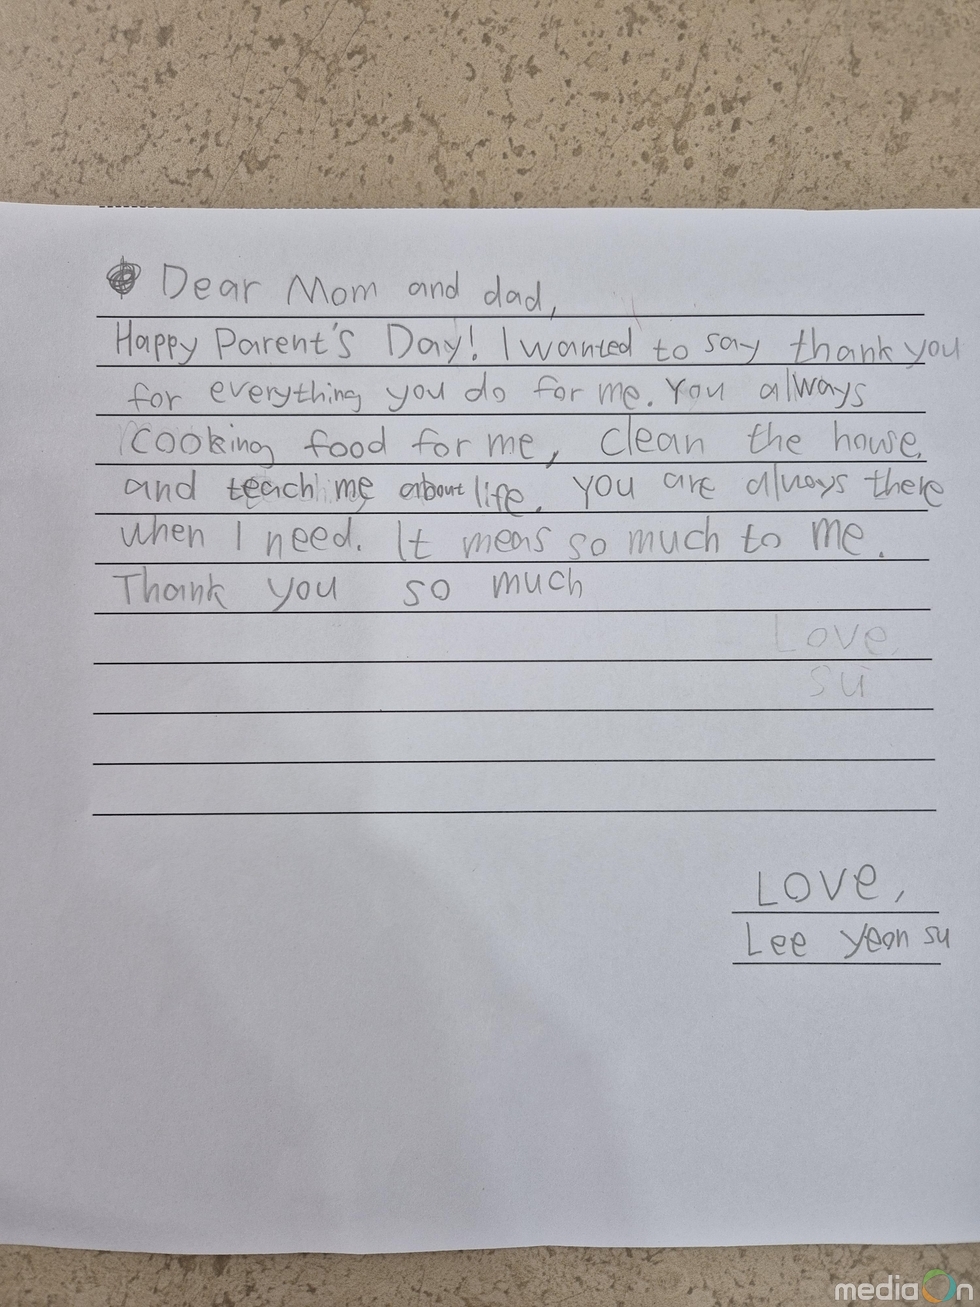 Dear Mom and dad,
Happy Parent's Day! I wanted to say thank you
for everything you do for me. You always
cooking food for me, clean the house,
and teach me about life. you are always there
when I need. It means so much to me.
Thank you so much
Love,
su
Love,
Lee yeon su
mediaOn